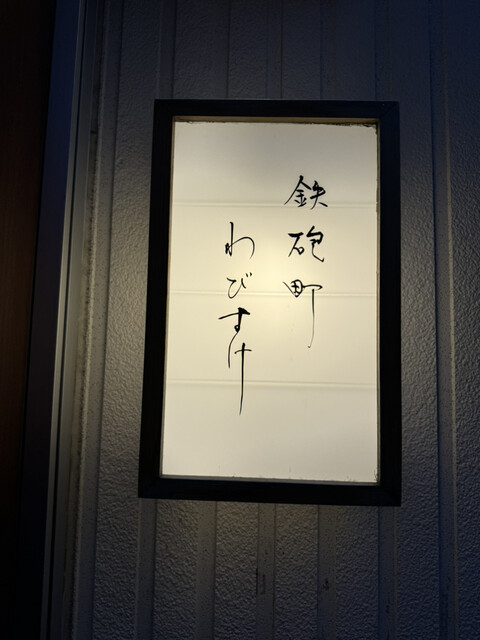 鉄砲町
わびすけ